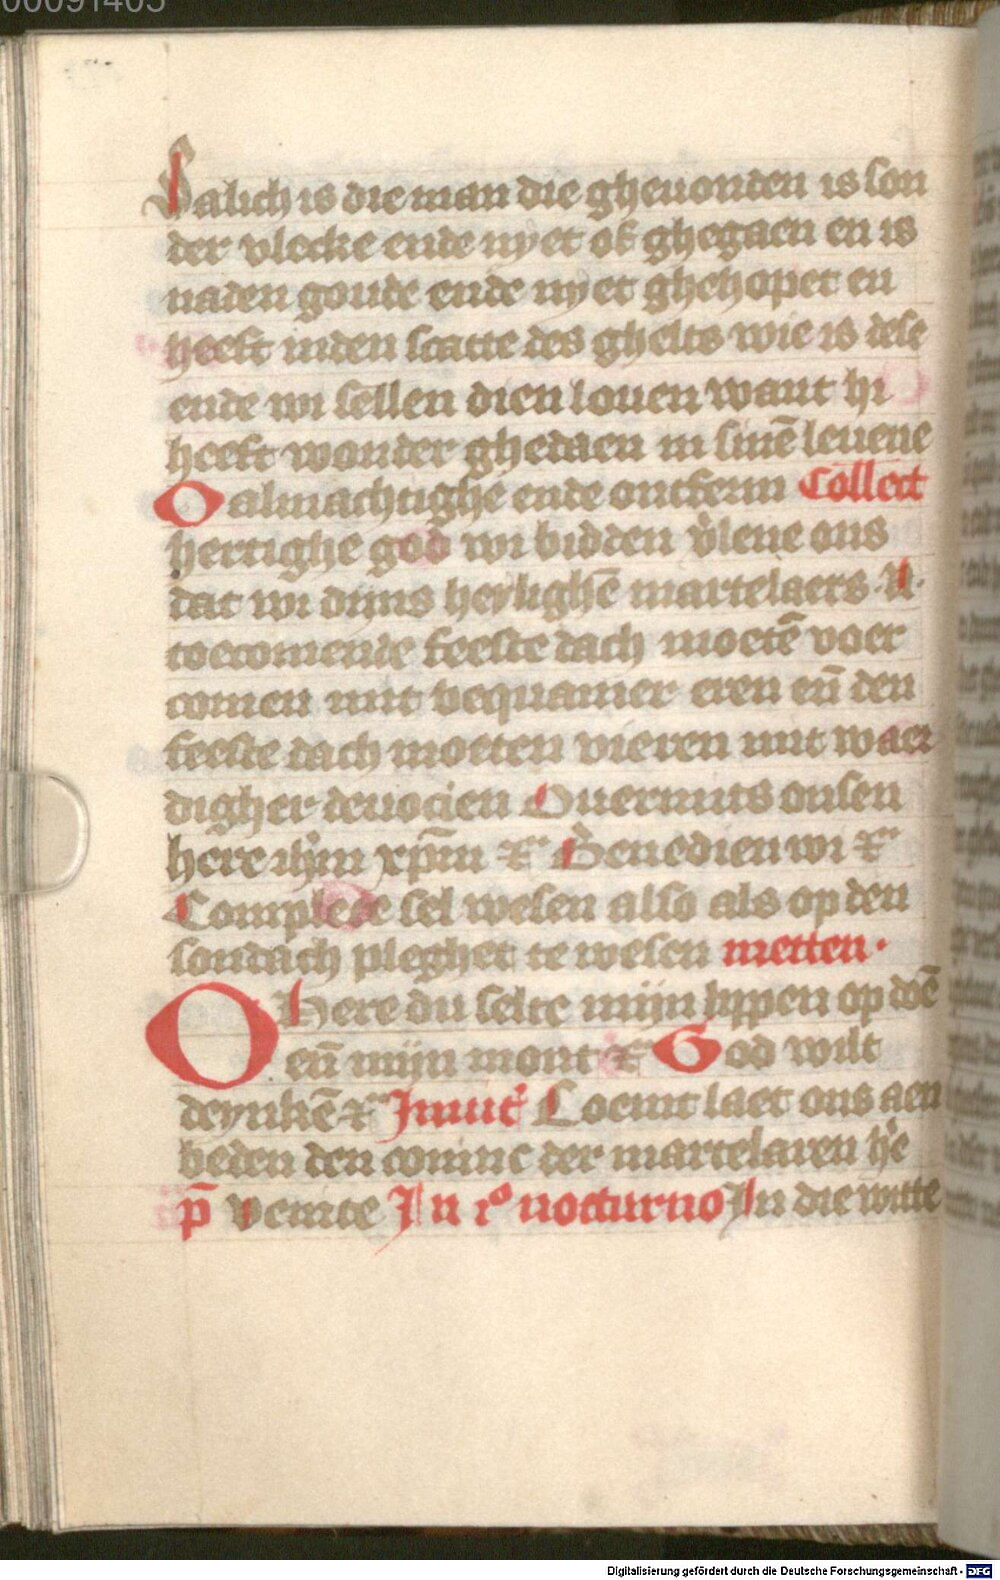 00091405
Salich is die man die gheuonden is son
der vlecke ende nyet of ghegaen en is
naden goude ende nyet ghehopet en
heeft inden scatte des ghelts wie is dese
ende wi sellen dien louen want hi
heeft wonder ghedaen in sinē leuene
O almachtighe ende ontferm Collect
hertighe god wi bidden v̓lene ons
dat wi dijns heylighē martelaers .N.
toecomende feeste dach moetē voer
comen mit bequamer eren eñ den
feeste dach moeten vieren mit waer
digher deuocien Ouermits onsen
here ihm̄ xpm̄ ⁊c̓ Benedien wi ⁊c̓
Complete sel wesen also als op den
sondach pleghet te wesen metten.
O Here du selte mijn lyppen op doē
eñ mijn mont ⁊c̓ God wilt
deynkē ⁊c̓ Inuit̓ Coemt laet ons aen
beden den coninc der martelaren h̓e
p̄ venite In 1º nocturno In die witte
Digitalisierung gefördert durch die Deutsche Forschungsgemeinschaft - DFG